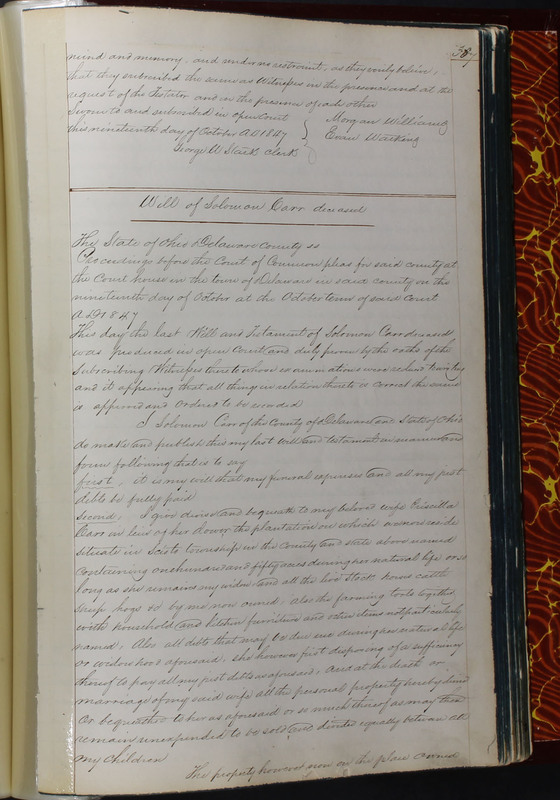 387
mind and memory, and under no restraint, as they verily believe,
that they subscribed the same as Witnesses in the presence and at the
request of the Testator and in the presence of each other
Sworn to and subscribed in open Court
this nineteenth day of October AD 1847
Morgan Williams
Evan Watkins
George W Stark clerk
Will of Solomon Carr deceased
The State of Ohio Delaware County ss
Proceedings before the Court of Common pleas for said county at
the Court house in the town of Delaware in said county on the
nineteenth day of October at the October term of said Court
AD 1847
This day the last Will and Testament of Solomon Carr deceased
was produced in open Court and duly proven by the oaths of the
subscribing Witnesses thereto whose examinations were reduced to writing
and it appearing that all things in relation thereto is correct the same
is approved and Ordered to be recorded
I Solomon Carr of the County of Delaware and State of Ohio
do make and publish this my last will and testament in manner and
form following that is to say
first, it is my will that my funeral expenses and all my just
debts be fully paid
Second, I give devise and bequeath to my beloved wife Priscilla
Carr in lieu of her dower the plantation on which we now reside
situate in Scioto township in the County and State above named
containing one hundred and fifty acres during her natural life or so
long as she remains my widow and all the live Stock horses cattle
sheep hogs &c by me now owned, also the farming tools together
with household and kitchen furniture and other items not particularly
named, Also all debts that may be due me during her natural life
or widow hood aforesaid, she however first disposing of a sufficiency
thereof to pay all my just debts as aforesaid, and at the death or
marriage of my said wife all the personal property hereby devised
Or bequeathed to her as aforesaid or so much thereof as may then
remain unexpended to be sold and divided equally between all
my Children
The property however now on the place owned